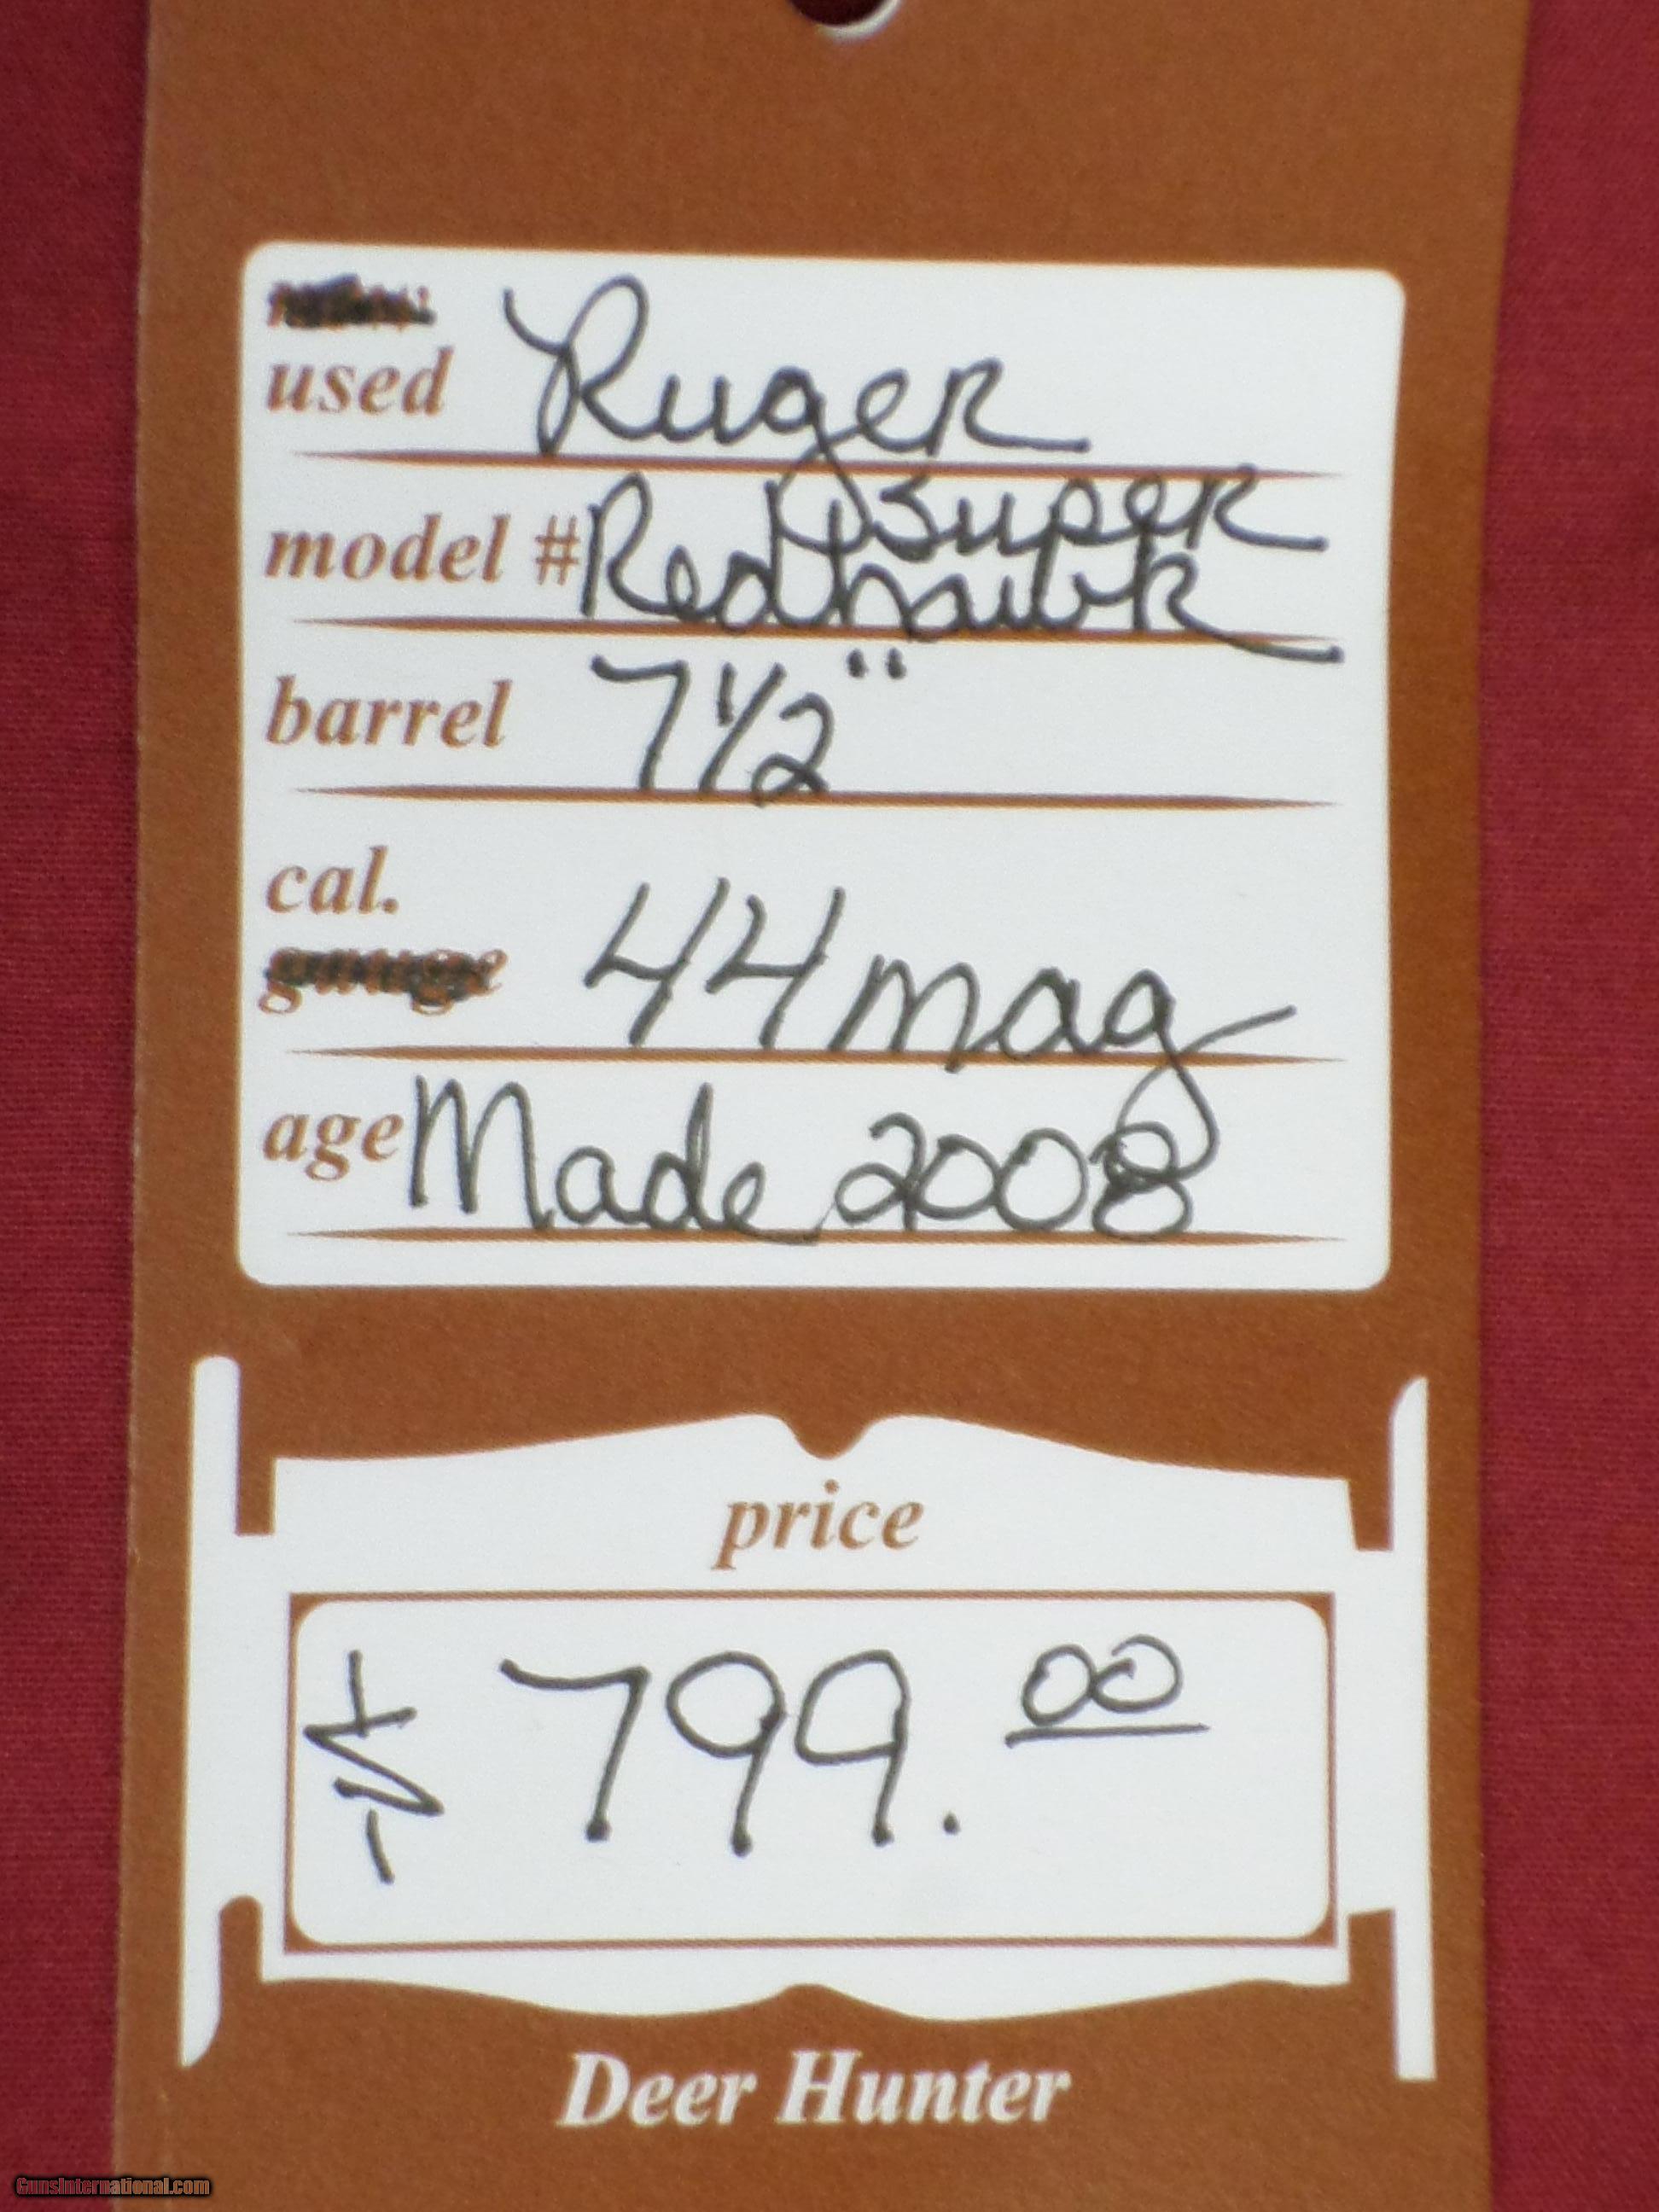 used Ruger
Super
model # Redhawk
barrel 7 1/2"
cal.
gauge 44 mag
age Made 2008
price
$ 799.00
Deer Hunter
GunsInternational.com